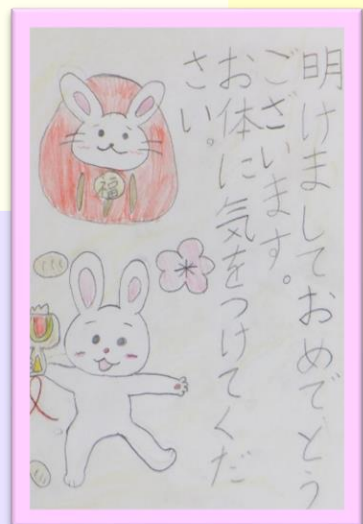 明けましておめでとう
ございます。
お体に気をつけてくだ
さい。
福